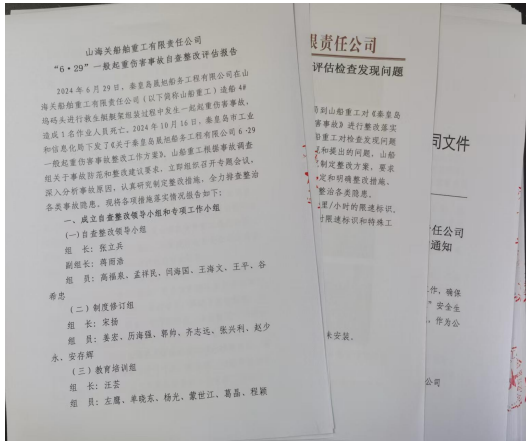 山海关船舶重工有限责任公司
“6·29”一般起重伤害事故自查整改评估报告
2024年6月29日，秦皇岛晟妲船务工程有限公司在山
海关船舶重工有限责任公司（以下简称山船重工）造船4#
坞码头进行救生艇艇架组装过程中发生一起起重伤害事故，
造成1名作业人员死亡。2024年10月16日，秦皇岛市工业
和信息化局下发了《关于秦皇岛晟妲船务工程有限公司6·29
一般起重伤害事故整改工作方案》，山船重工根据事故调查
组关于事故防范和整改建议要求，立即组织召开专题会议，
深入分析事故原因，认真研究制定整改措施，全力排查整治
各类事故隐患。现将各项措施落实情况报告如下：
一、成立自查整改领导小组和专项工作小组
(一)自查整改领导小组
组 长：张立兵
副组长：蒋雨浩
组 员：高福泉、孟祥民、闫海国、王海文、王平、各
希忠
（二）制度修订组
组 长：宋扬
组 员：姜宏、历海强、郭帅、齐志远、张兴利、赵少
永、安存辉
（三）教育培训组
组 长：汪芸
组 员：左鹰、单晓东、杨光、蒙世江、葛晶、程颖
限责任公司
评估检查发现问题
局到山船重工对《秦皇岛
害事故》进行整改落实
沿重工对检查发现问题
和提出的问题，山船
制定整改方案，要求
定和明确整改措施、
整治各类隐患。
里/小时的限速标识。
时限速标识和特殊工
未安装。
司文件
任公司
通知
工作，确保
”安全生
，作为公
公司